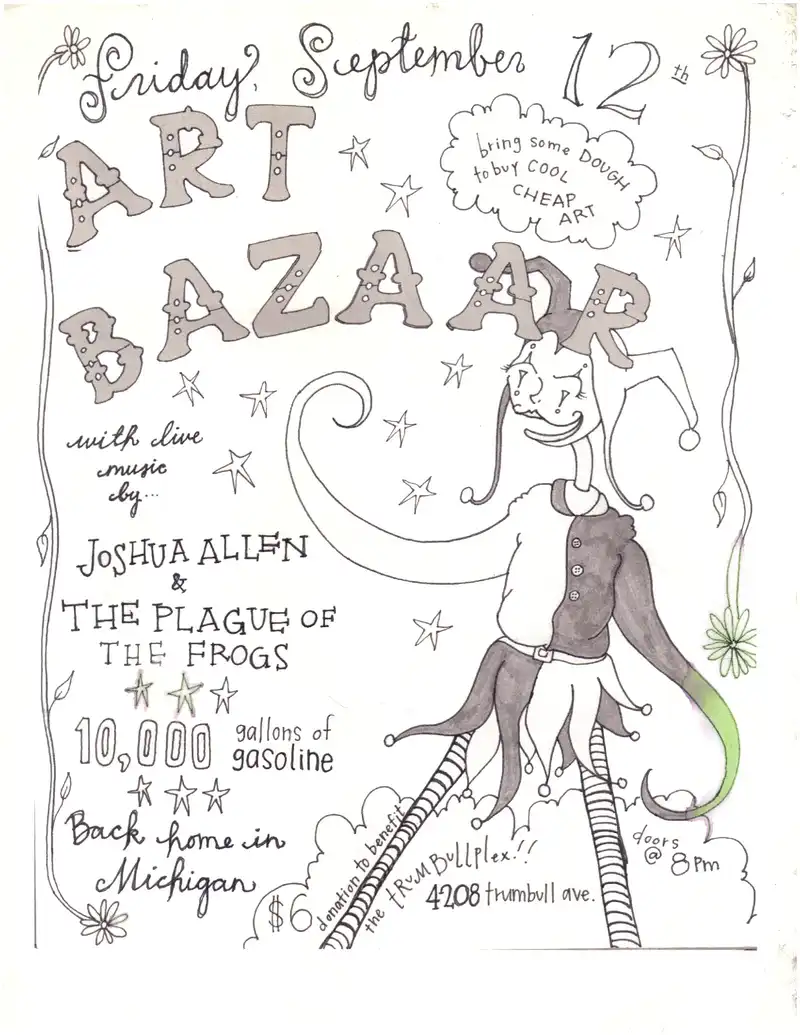 Friday, September 12th
ART
BAZAAR
bring some DOUGH
to buy COOL
CHEAP
ART
with live
music
by...
JOSHUA ALLEN
&
THE PLAGUE OF
THE FROGS
10,000 gallons of
gasoline
Back home in
Michigan
$6 donation to benefit
the tRuMBullplex!!
4208 trumbull ave.
doors
@ 8pm